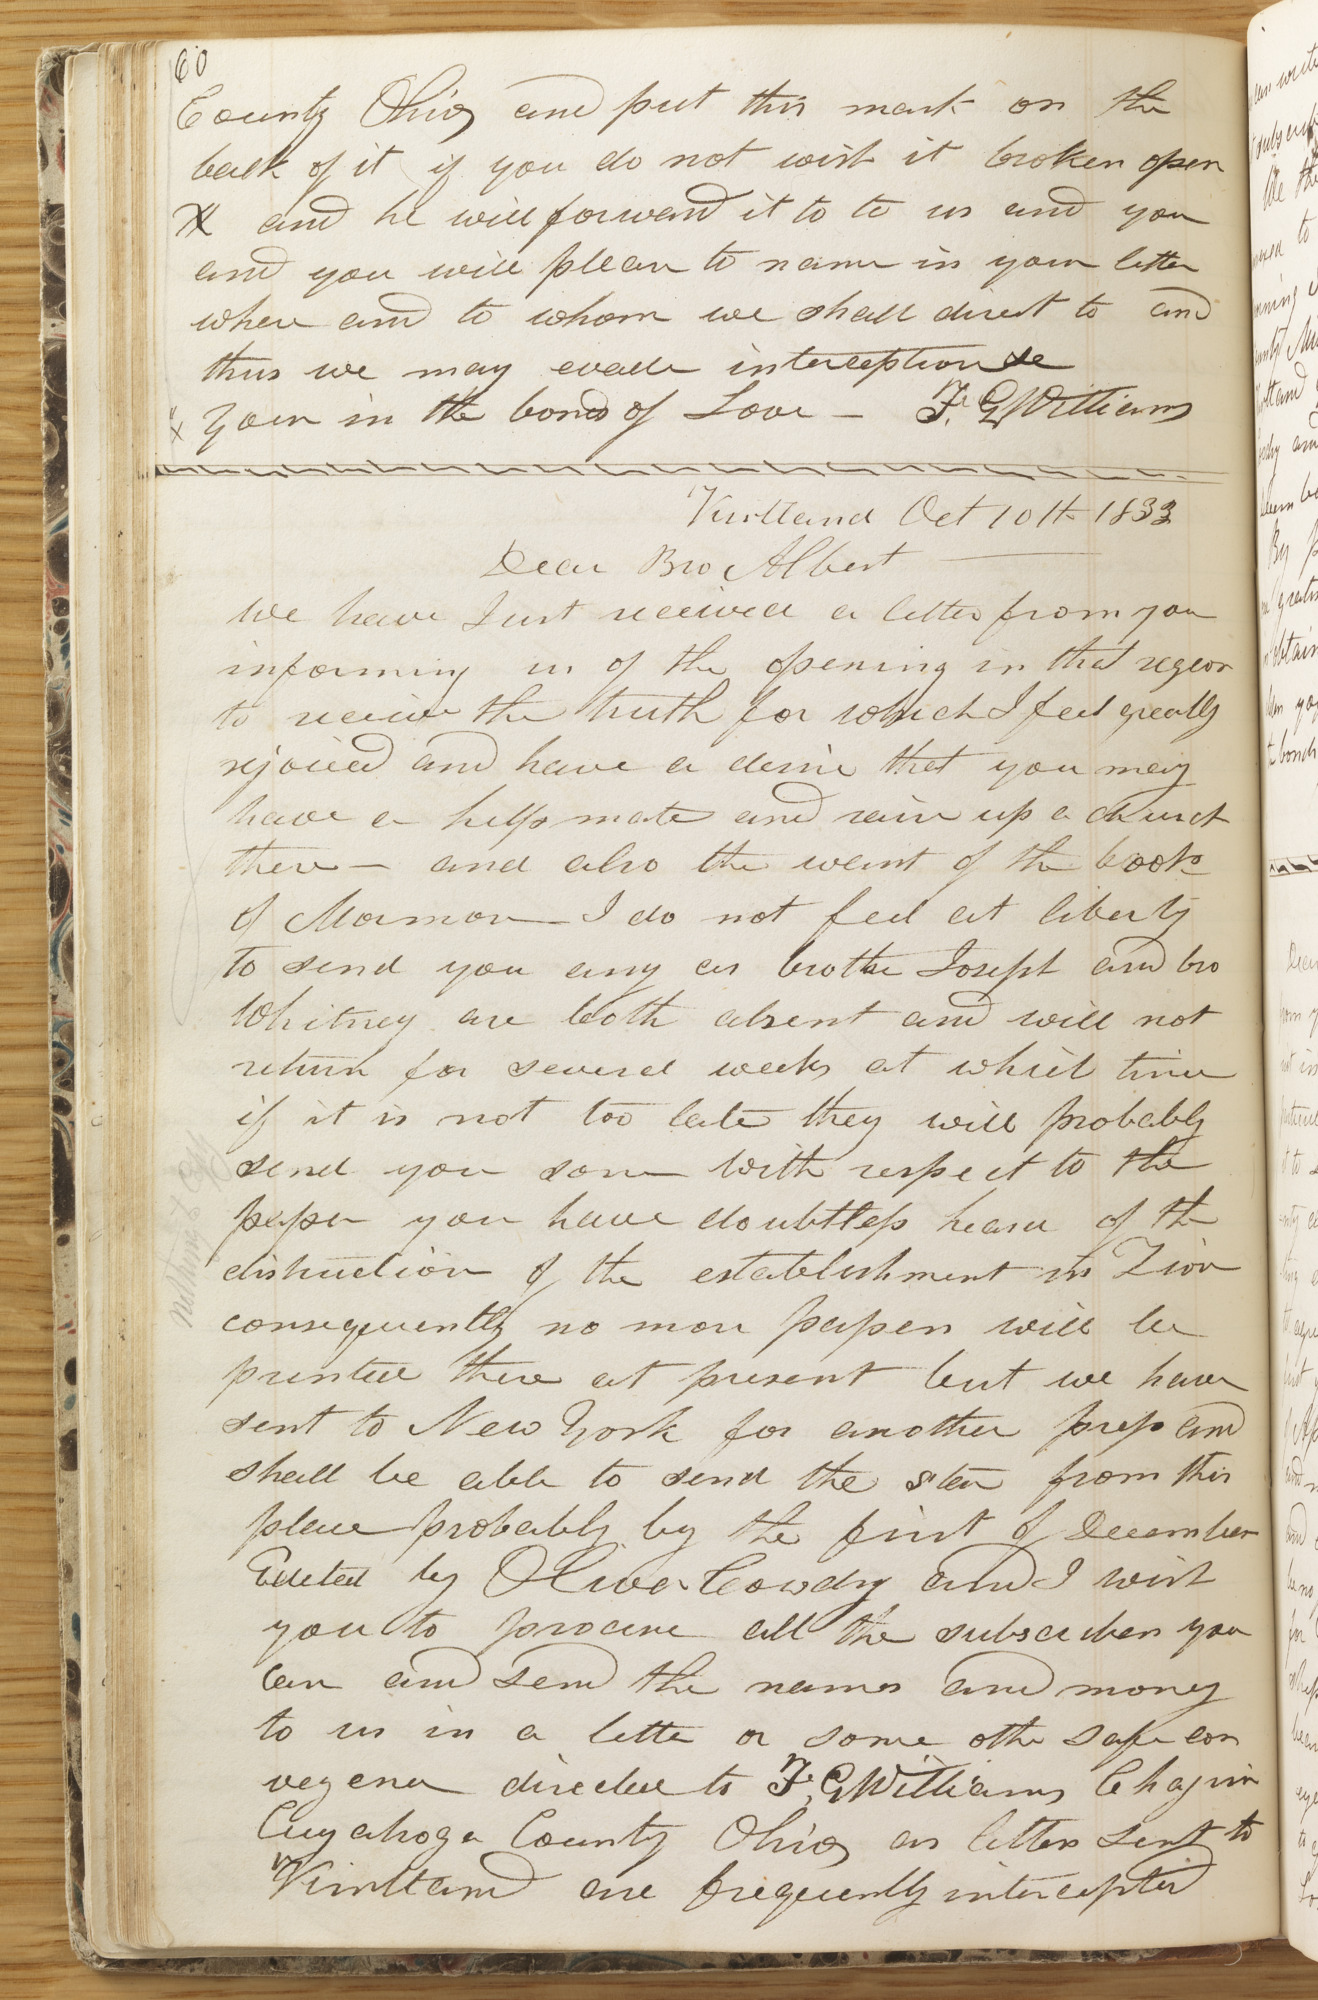 60
County Ohio and put this mark on the
back of it if you do not wish it broken open
X and he will forward it to to us and you
and you will please to name in your letter
where and to whom we shall direct to and
thus we may evade interception
Your in the bonds of Love — F. G Williams
Kirtland Oct 10th 1833
Dear Bro Albert
We have Just received a letter from you
informing us of the opening in that region
to receive the truth for which I feel greatly
rejoiced and have a desire that you may
have a help mate and raise up a church
there — and also the want of the book
of Mormon — I do not feel at liberty
to send you any as brother Joseph and bro
Whitney are both absent and will not
return for several weeks at which time
if it is not too late they will probably
send you some with respect to the
paper you have doubtless heard of the
distruction of the establishment in Zion
consequently no more papers will be
printed there at present but we have
sent to New York for another press and
shall be able to send the star from this
place probably by the first of December
Edeted by Oliver Cowdry and I wish
you to procure all the subscribers you
can and send the names and money
to us in a letter or some other safe con
veyence directed to F. G Williams Chagrin
Cuyahoga County Ohio as letters sent to
Kirtland are frequently intercepted